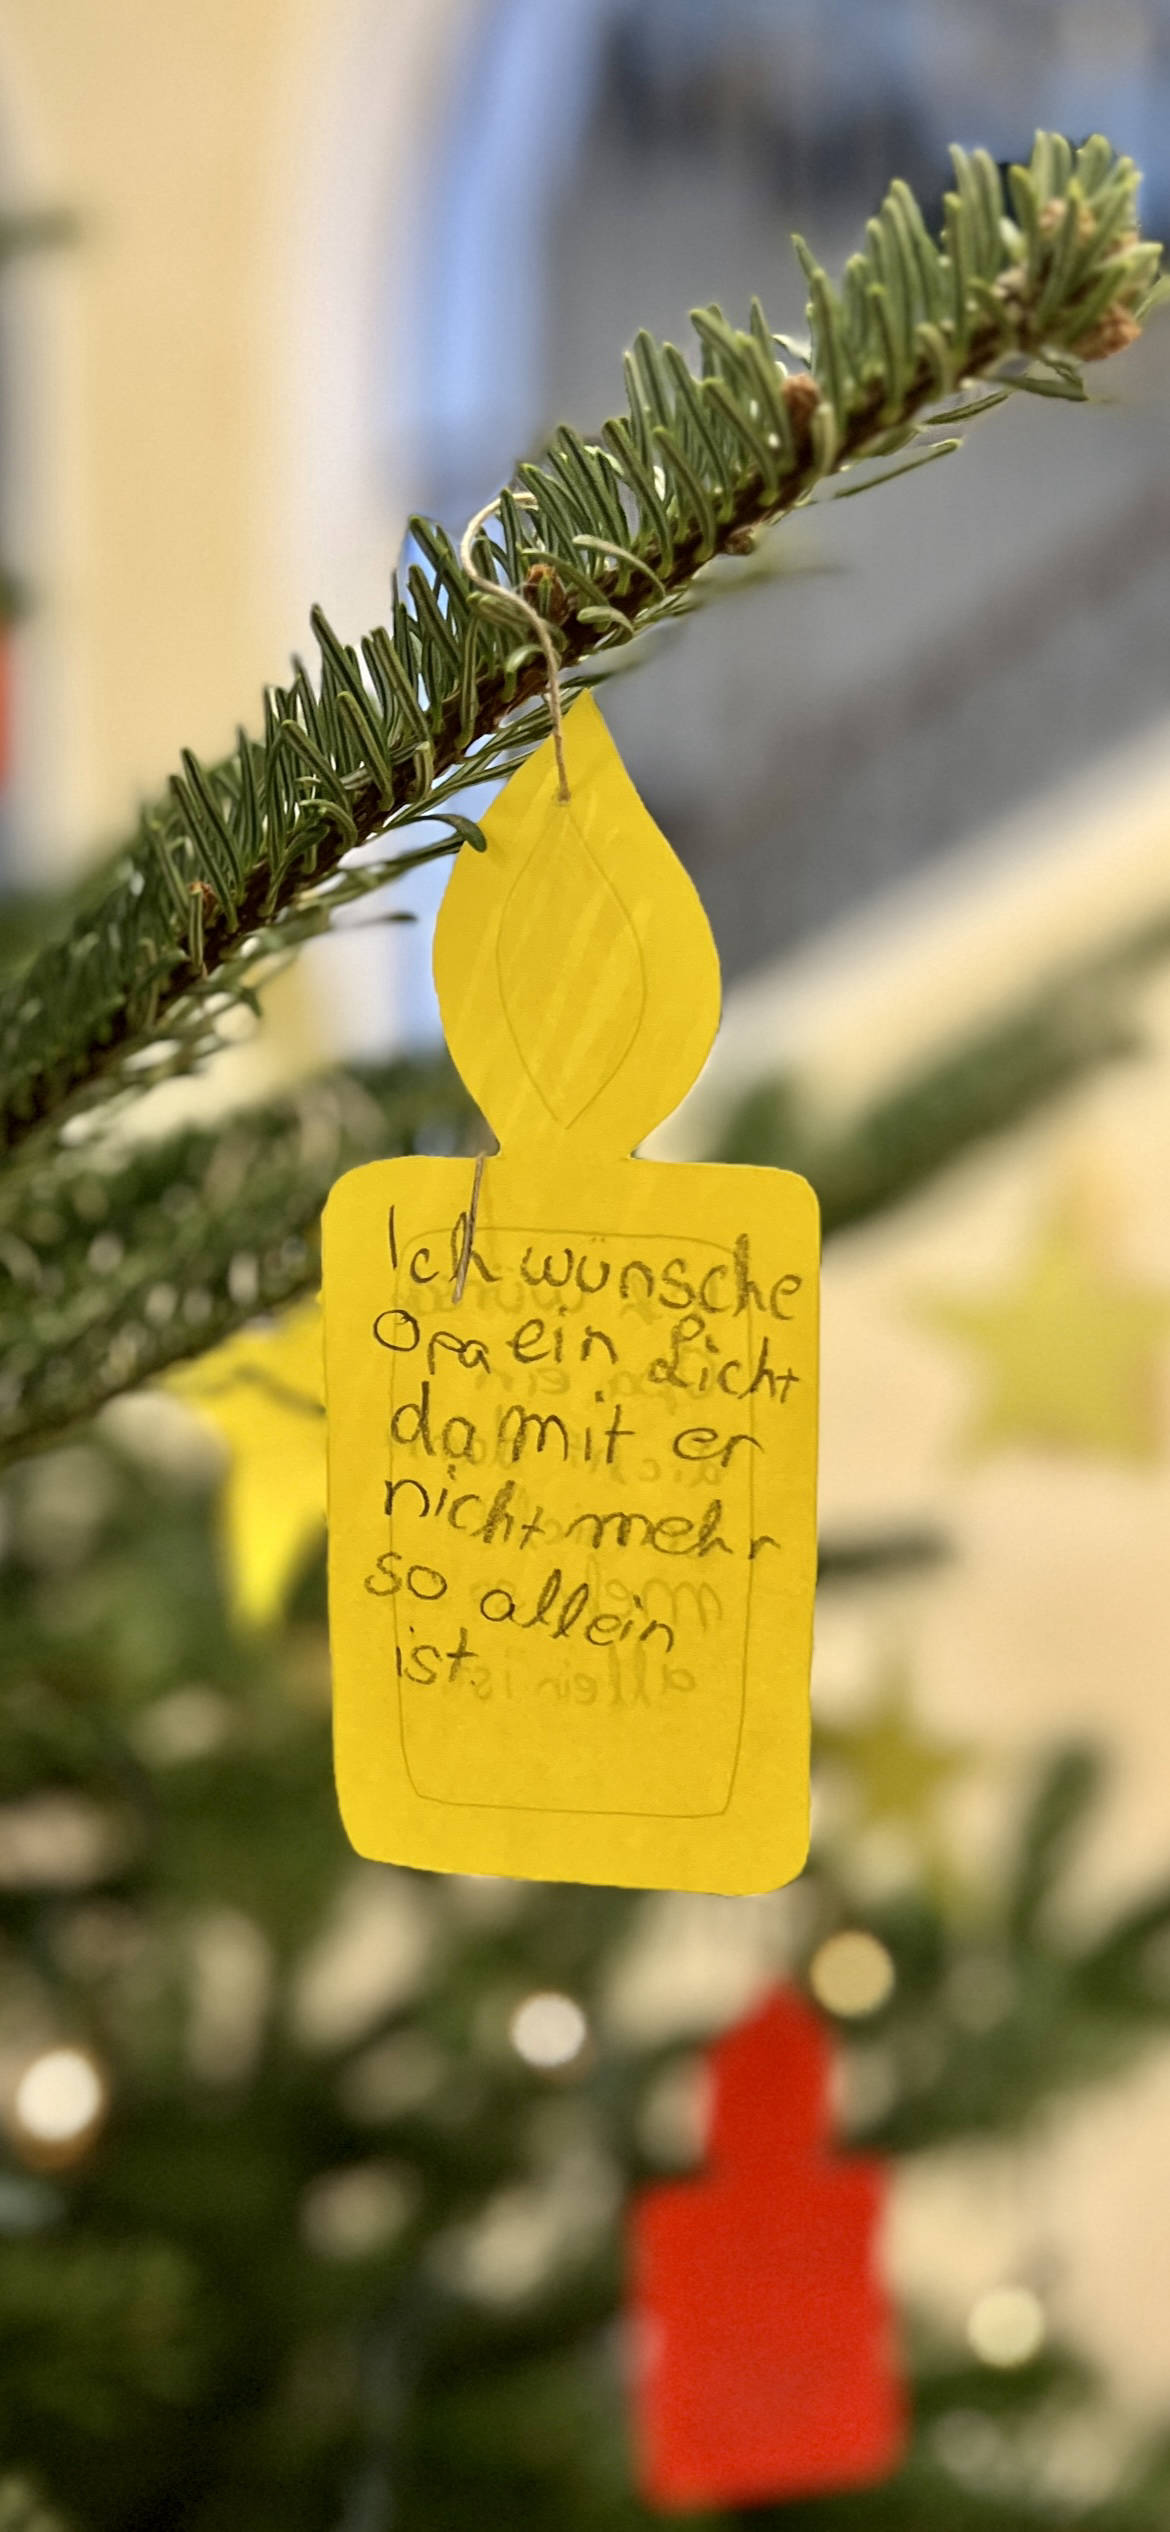 Ich wünsche
Opa ein Licht
damit er
nicht mehr
so allein
ist.